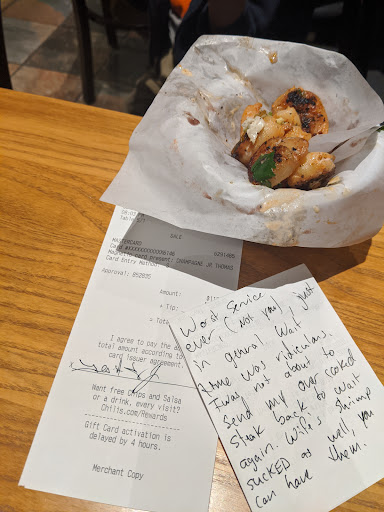 SALE
MASTERCARD 9291405
Card #XXXXXXXXXXXX
Magnetic card present: CHAMPAGNE JR THOMAS
Card Entry Method:
Approval: 052895
Amount:
+ Tip:
= Tota
I agree to pay the a
total amount according to
card issuer agreement.
Want free Chips and Salsa
or a drink, every visit?
Chilis.com/Rewards
Gift Card activation is
delayed by 4 hours.
Merchant Copy
Worst Service
ever, (not you) just
in general. Wait
time was ridiculous.
I was not about to
send my over cooked
steak back to wait
again. Wife's shrimp
SUCKED as well, you
can have them.